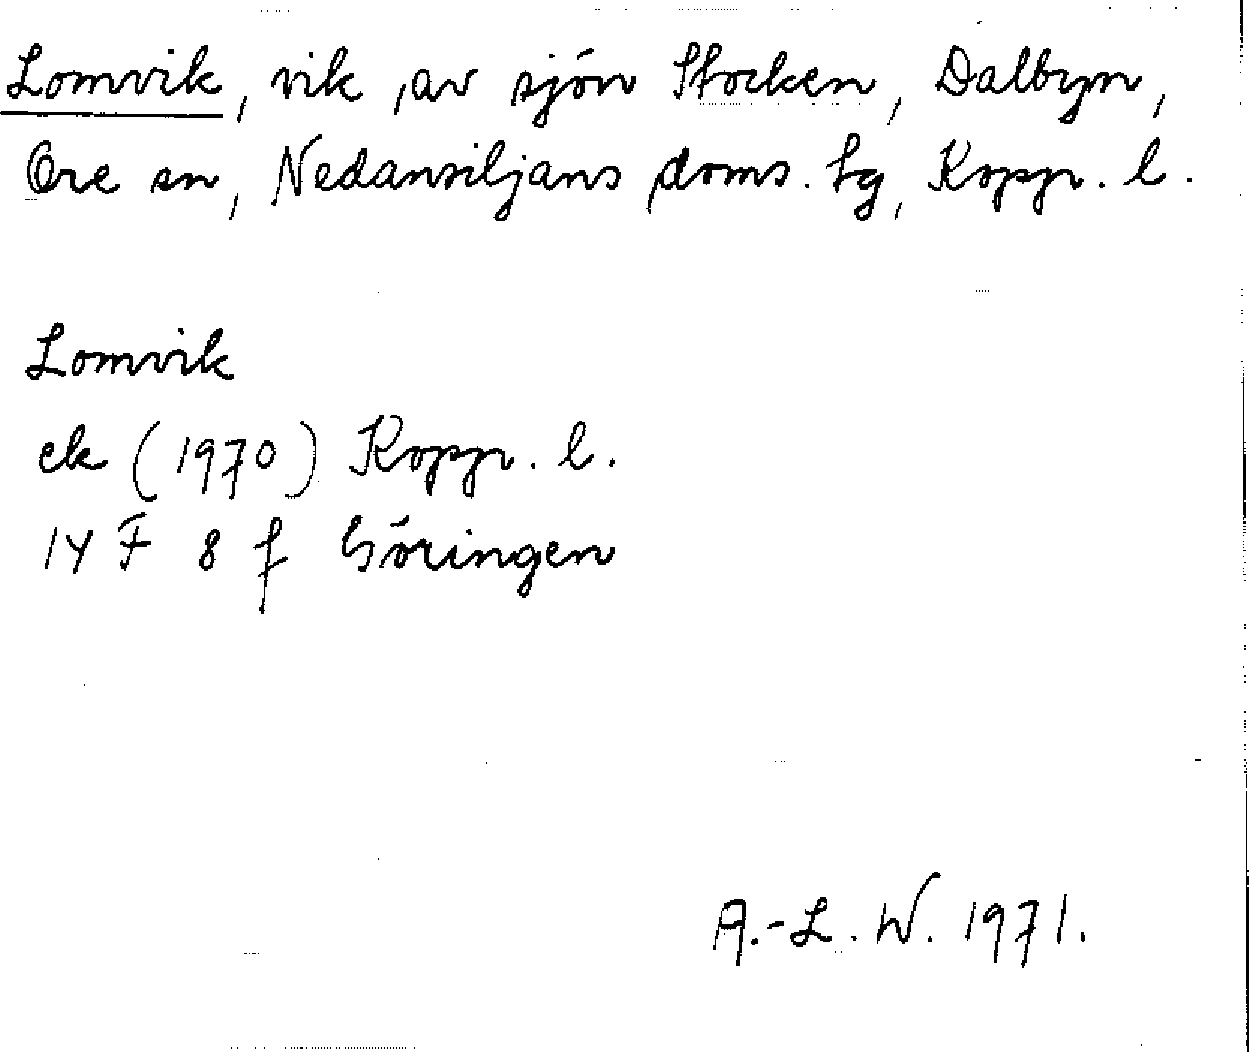 Lomvik, vik av sjön Stocken, Dalbyn,
Ore sn, Nedansiljans doms. tg, Kopp. l.
Lomvik
ek (1970) Kopp. l.
14 F 8 f Göringen
A.-L. W. 1971.